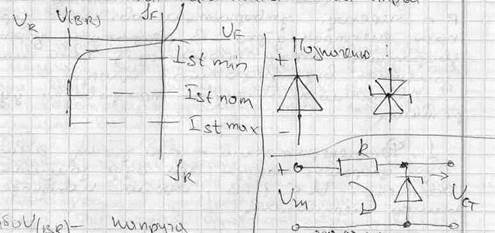 U_R
U(BR)
J_F
U_F
I st min
I st nom
I st max
J_R
Позначено :
+
-
+
R
U_m
U_ст
U(BR) - напруга